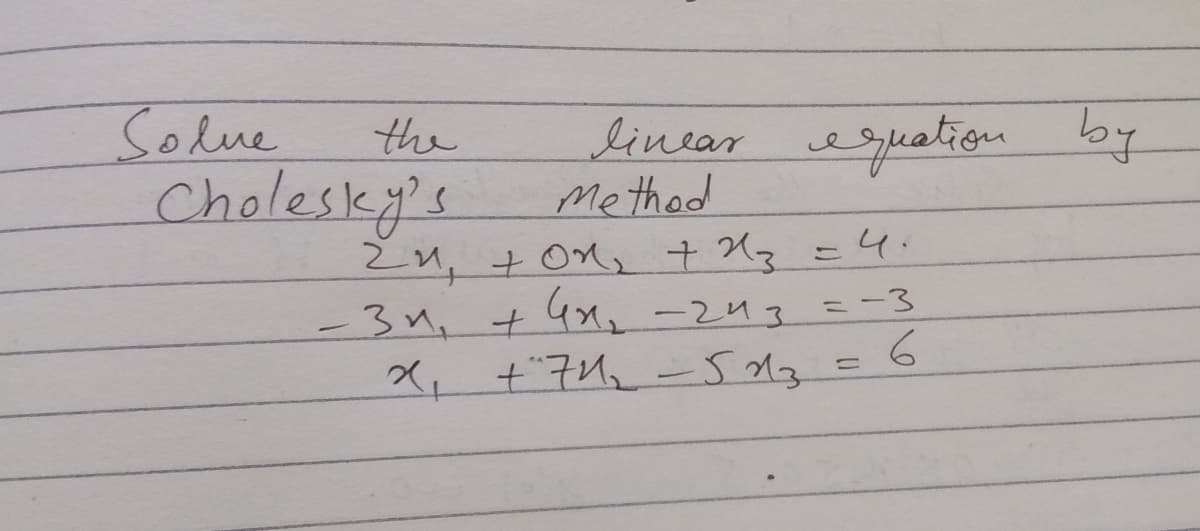 Solve the linear equation by
Cholesky's Method
2x₁ + 0x₂ + x₃ = 4.
-3x₁ + 4x₂ - 2x₃ = -3
x₁ + 7x₂ - 5x₃ = 6